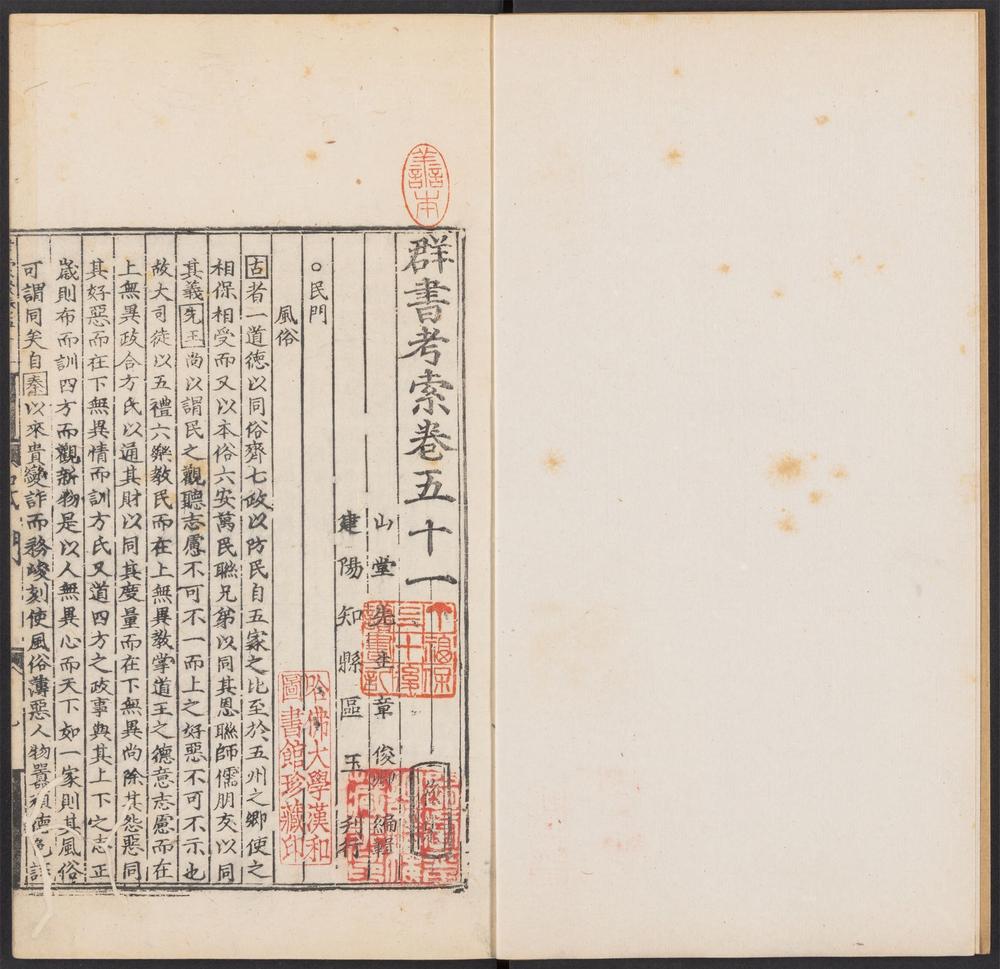 善本
群書考索卷五十一
山堂先生章俊卿編輯
建陽知縣區玉刋行
哈佛大學漢和
圖書館珍藏印
○民門
風俗
古者一道德以同俗齊七政以防民自五家之比至於五州之鄉使之
相保相受而又以本俗六安萬民聮兄弟以同其恩聮師儒朋友以同
其義先王尚以謂民之觀聽志慮不可不一而上之好惡不可不示也
故大司徒以五禮六樂教民而在上無異教掌道王之德意志慮而在
上無異政合方氏以通其財以同其度量而在下無異尚除其怨惡同
其好惡而在下無異情而訓方氏又道四方之政事與其上下之志正
歲則布而訓四方而觀新物是以人無異心而天下如一家則其風俗
可謂同矣自秦以來貴變詐而務峻刻使風俗薄惡人物嚚頑